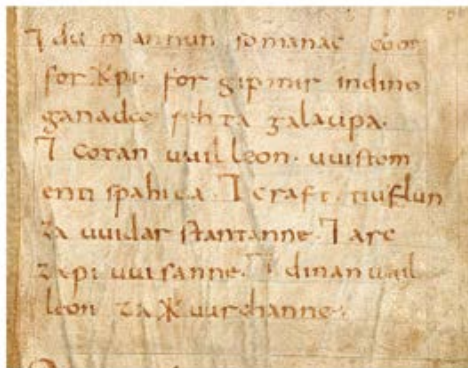 ⁊ du mannun somanac coot
for ᚼpi. for gipmir indino
ganada rehta galaupa.
⁊ cotan uuilleon. uuistom
enti spahida. ⁊ craft. tiuflun
za uuidar stantanne. ⁊ arc
zapi uuisanne. ⁊ dinan uuil
leon za ᚼuurchanne.